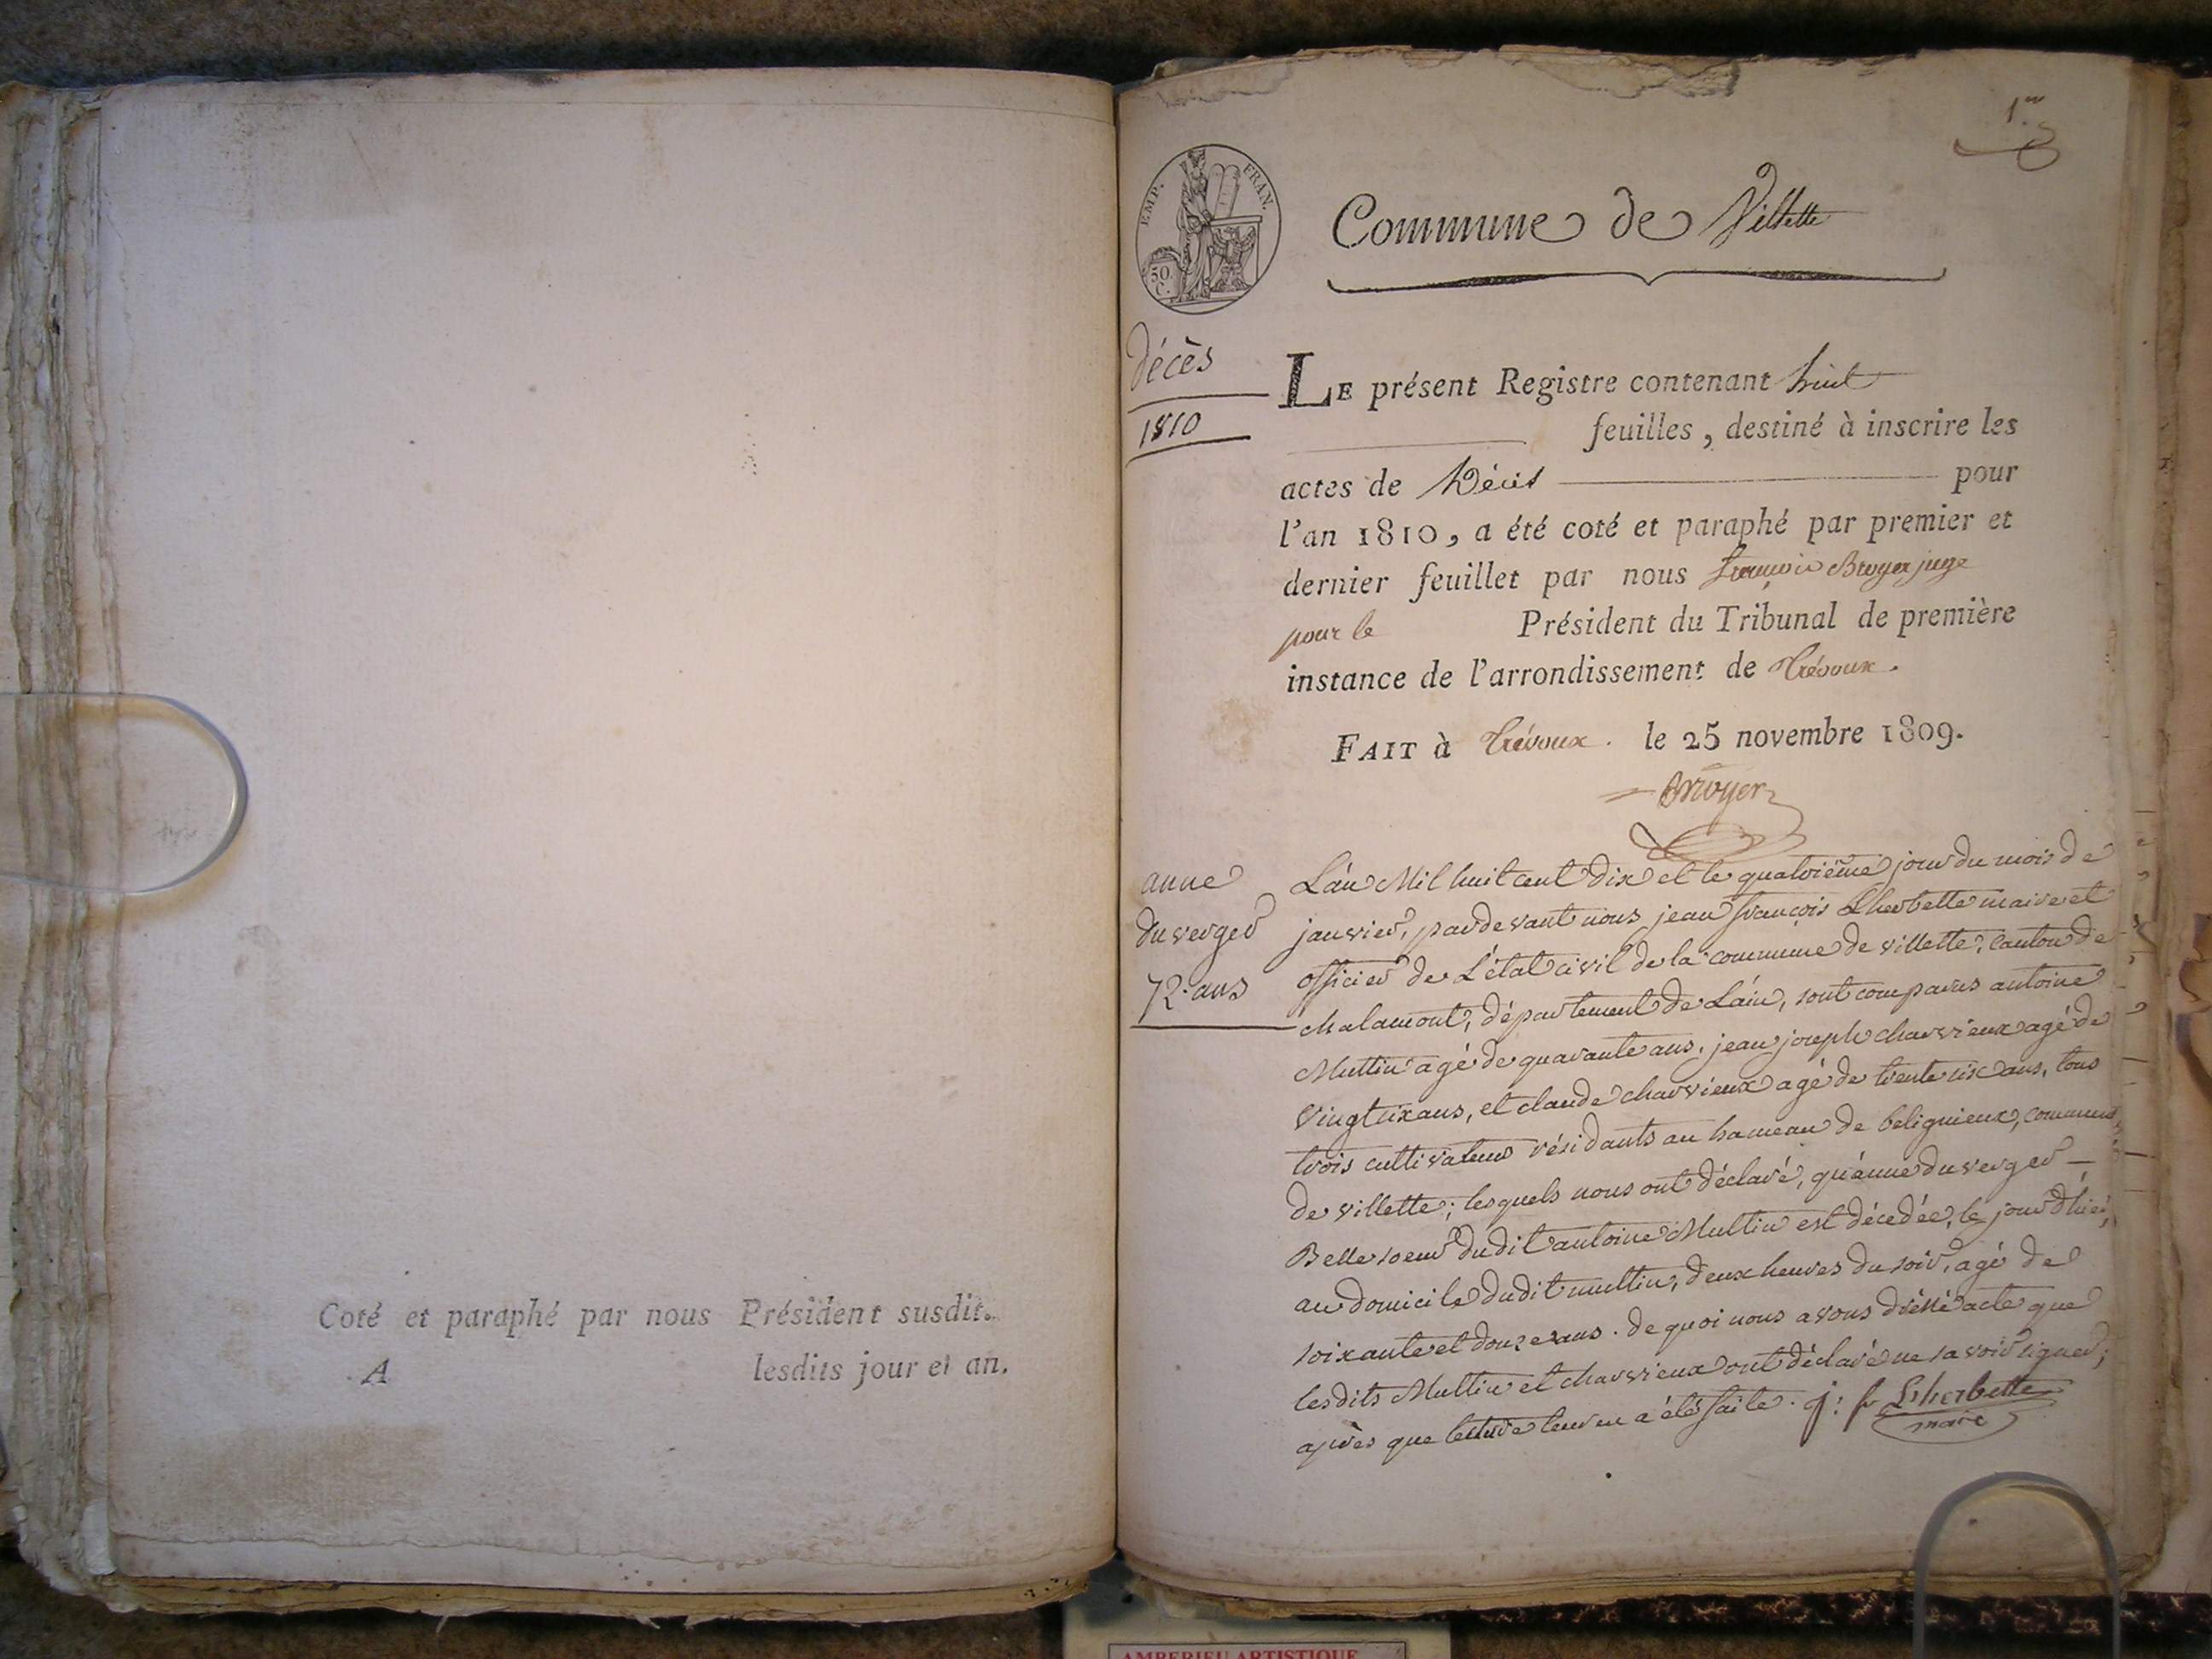 Coté et paraphé par nous Président susdit.
A lesdits jour et an.
1er
EMP. FRAN.
50.
C.
Commune de Villette
décès
1810
LE présent Registre contenant huit
feuilles, destiné à inscrire les
actes de Décès pour
l'an 1810, a été coté et paraphé par premier et
dernier feuillet par nous françois Broyer juge
pour le Président du Tribunal de première
instance de l'arrondissement de Trévoux.
FAIT à Trévoux. le 25 novembre 1809.
Broyer
anne
du verger
72. ans
L'an Mil huit cent dix et le quatrième jour du mois de
janvier, pardevant nous jean françois Lherbette maire et
officier de L'état civil de la commune de villette, canton de
chalamont, département de L'ain, sont comparus antoine
Multin agé de quarante ans, jean joseph charvieux agé de
vingt six ans, et claude charvieux agé de trente six ans, tous
trois cultivateurs résidants au hameau de belignieux, commune
de villette; lesquels nous ont déclaré, qu'anne du verger
Belle soeur dudit antoine Multin est décedée, le jour d'hier,
au domicile dudit multin, deux heures du soir, agé de
soixante et douze ans. de quoi nous avons dréssé acte que
lesdits Multin et charvieux ont déclaré ne savoir signer,
après que lecture leur en a été faite. j: f Lherbette
maire
AMBERIEU ARTISTIQUE